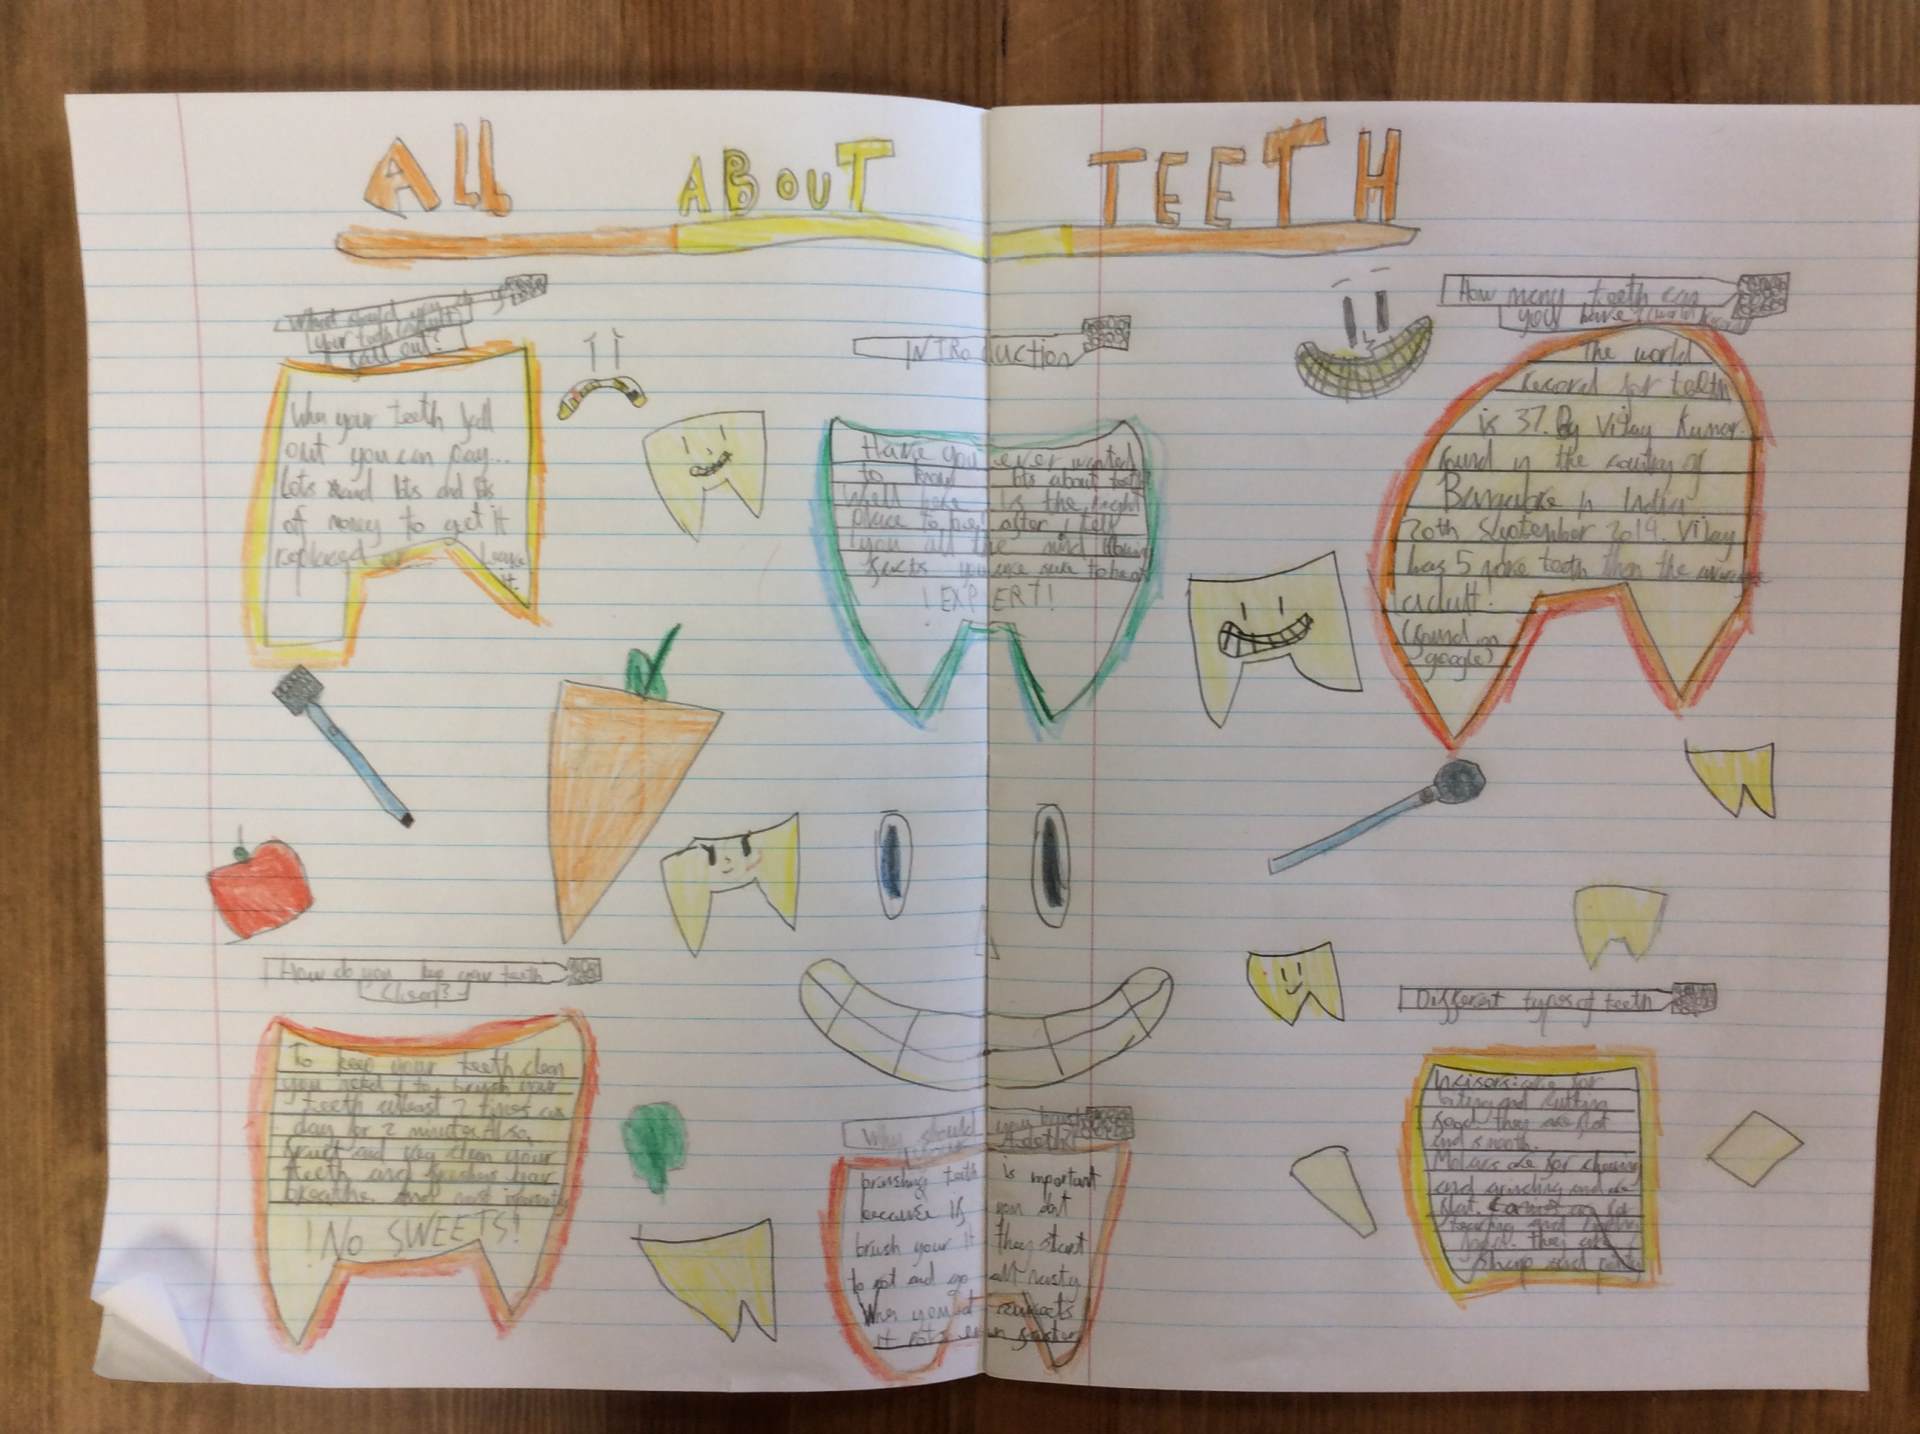 ALL ABOUT TEETH
What should you do if
your tooth (adult)
fall out?
When your teeth fall
out you can pay...
Lots and lots and lots
of money to get it
replaced or Leave
it.
INTRoduction
Have you ever wanted
to know lots about teeth
well here is the right
place to be! after I tell
you all the mind blowing
facts you are sure to be a
! EXPERT!
How many teeth can
you have (world record)
The world
record for teeth
is 37. By Vijay Kumar.
found in the country of
Bangalore in India
20th September 2014. Vijay
has 5 more teeth than the average
adult!
(found on
google)
How do you keep your teeth
clean?
To keep your teeth clean
you need to brush your
teeth atleast 2 times a
day for 2 minutes. Also,
fruit and veg clean your
teeth and freshens your
breathe. And most importantly
! No SWEETS!
Why should you brush
brushing teeth is important
because if you dont
brush your it they start
to rot and go all nasty
When you eat sweets
it rots even faster
Different types of teeth
Incisors: are for
biting and cutting
food they are flat
and smooth.
Molars are for chewing
and grinding and are
flat. Canines are for
tearing and
they are
sharp and pointy